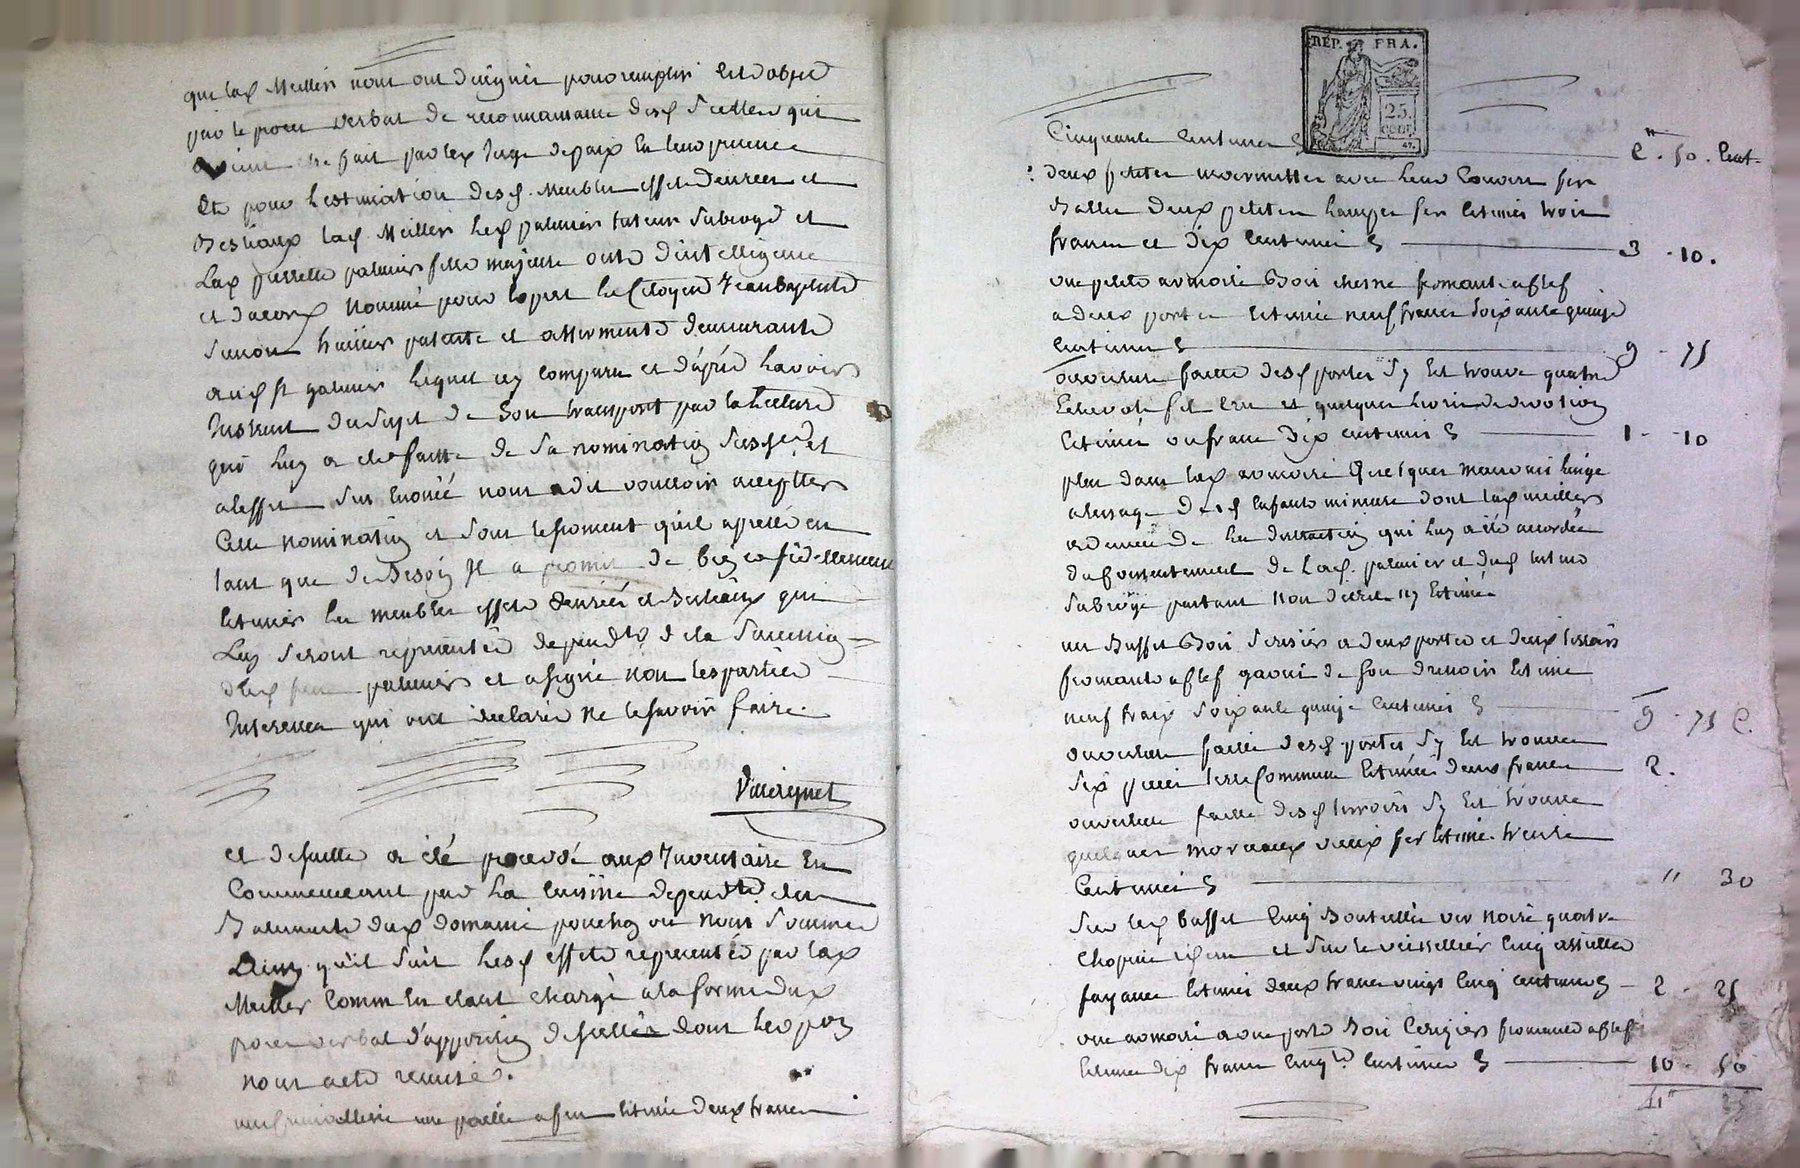 que lad Meiller nous ont designés pour remplir cet objet
par le procès verbal de reconnaissance desd scellés qui
avoient été fait par led Juge de paix en leur presence
Et pour l'estimation desd. meubles effets denrées et
Bestiaux lad Meiller led palmier tuteur subrogé et
Lad pierrette palmier fille majeure ont d'intelligence
et d'accord nommé pour expert le Citoyen Jean Baptiste
huissier patenté et assermenté demeurante
aud St galmier lequel icy comparu et d'après l'avoir
Instruit du sujet de son transport par la lecture
qui luy a été faitte de sa nomination susd et
a l'effet sus enoncé nous a dit vouloir accepter
Cette nomination et sous le serment qu'il a preté en
tant que de Besoin Il a promis de bien et fidellement
estimer les meubles effets denrées et Bestiaux qui
Luy seront representés dependts de la succession
dud feu palmier et a signé non les parties
Interessées qui ont declaré ne le savoir faire.
et de suitte a été procedé aux Inventaire en
Commencant par La cuisine dependte des
Batiments dud domaine pouchon ou nous sommes
ainsy qu'il suit lesd effets representés par lad
Meiller comm en etant chargé a la forme dud
procès verbal d'apposition de scellés dont l'expon
nous a eté remise.
une cremaillere une paelle a feu estimée deux francs
RÉP. FRA.
25
CENT.
Cinquante centimes 2. 50. Cent.
deux petites marmittes avec leur couvert fer
Battu deux petites lampes fer estimés trois
francs et dix centimes 3 - 10.
une petite armoire Bois chesne fromante a clef
a deux portes estimée neuf francs soixante quinze
centimes 9 - 75
ouverture faitte desd portes s'y est trouvé quatre
Echevots fil cru et quelques livres de devotion
Estimés un franc dix centimes 1 - 10
plus dans lad armoire quelques mauvais linge
a l'usage desd enfants mineurs dont lad meiller
a demandé la distraction qui luy a été accordée
du consentement de lad. palmier et dud tuteur
subrogé partant non decrit ny estimé
un Buffet Bois serisier a deux portes et deux tirroirs
fromante a clef garni de son drenoir Estimé
neuf francs soixante quinze centimes 9 - 75 C.
ouverture faitte desd portes s'y est trouvé
six pieces terre commune estimées deux francs 2.
ouverture faitte desd tirroirs s'y est trouvé
quelques morceaux vieux fer estimé trente
centimes " 30
sur led buffet cinq Bouteilles ver noir quatre
chopines idem et sur le veissellier cinq assiettes
fayance estimés deux francs vingt cinq centimes 2 - 25
une armoire a une porte Bois cerizier fromante a clef
estimée dix francs cinqte centimes 10 - 50